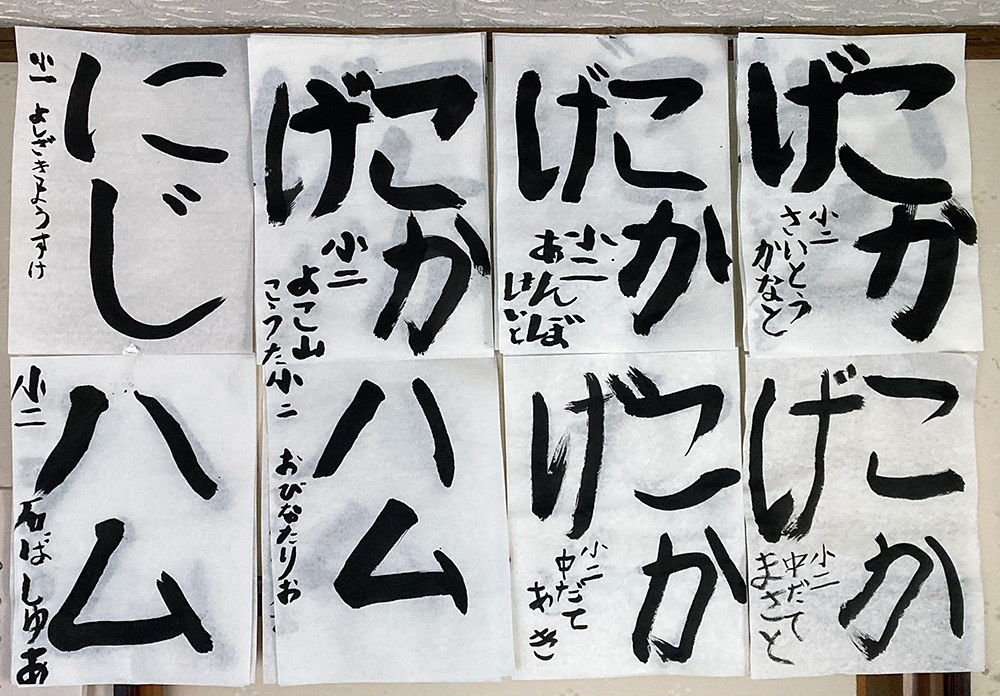 こか
げ
小二
さいとう
かなと
こか
げ
小二
あんぼ
けいと
こか
げ
小二
よこ山
こうた
にじ
小一 よしざきようすけ
こか
げ
小二
中だて
まさと
こか
げ
小二
中だて
あき
ハム
小二 おびなたりお
ハム
小二 石ばしゆあ